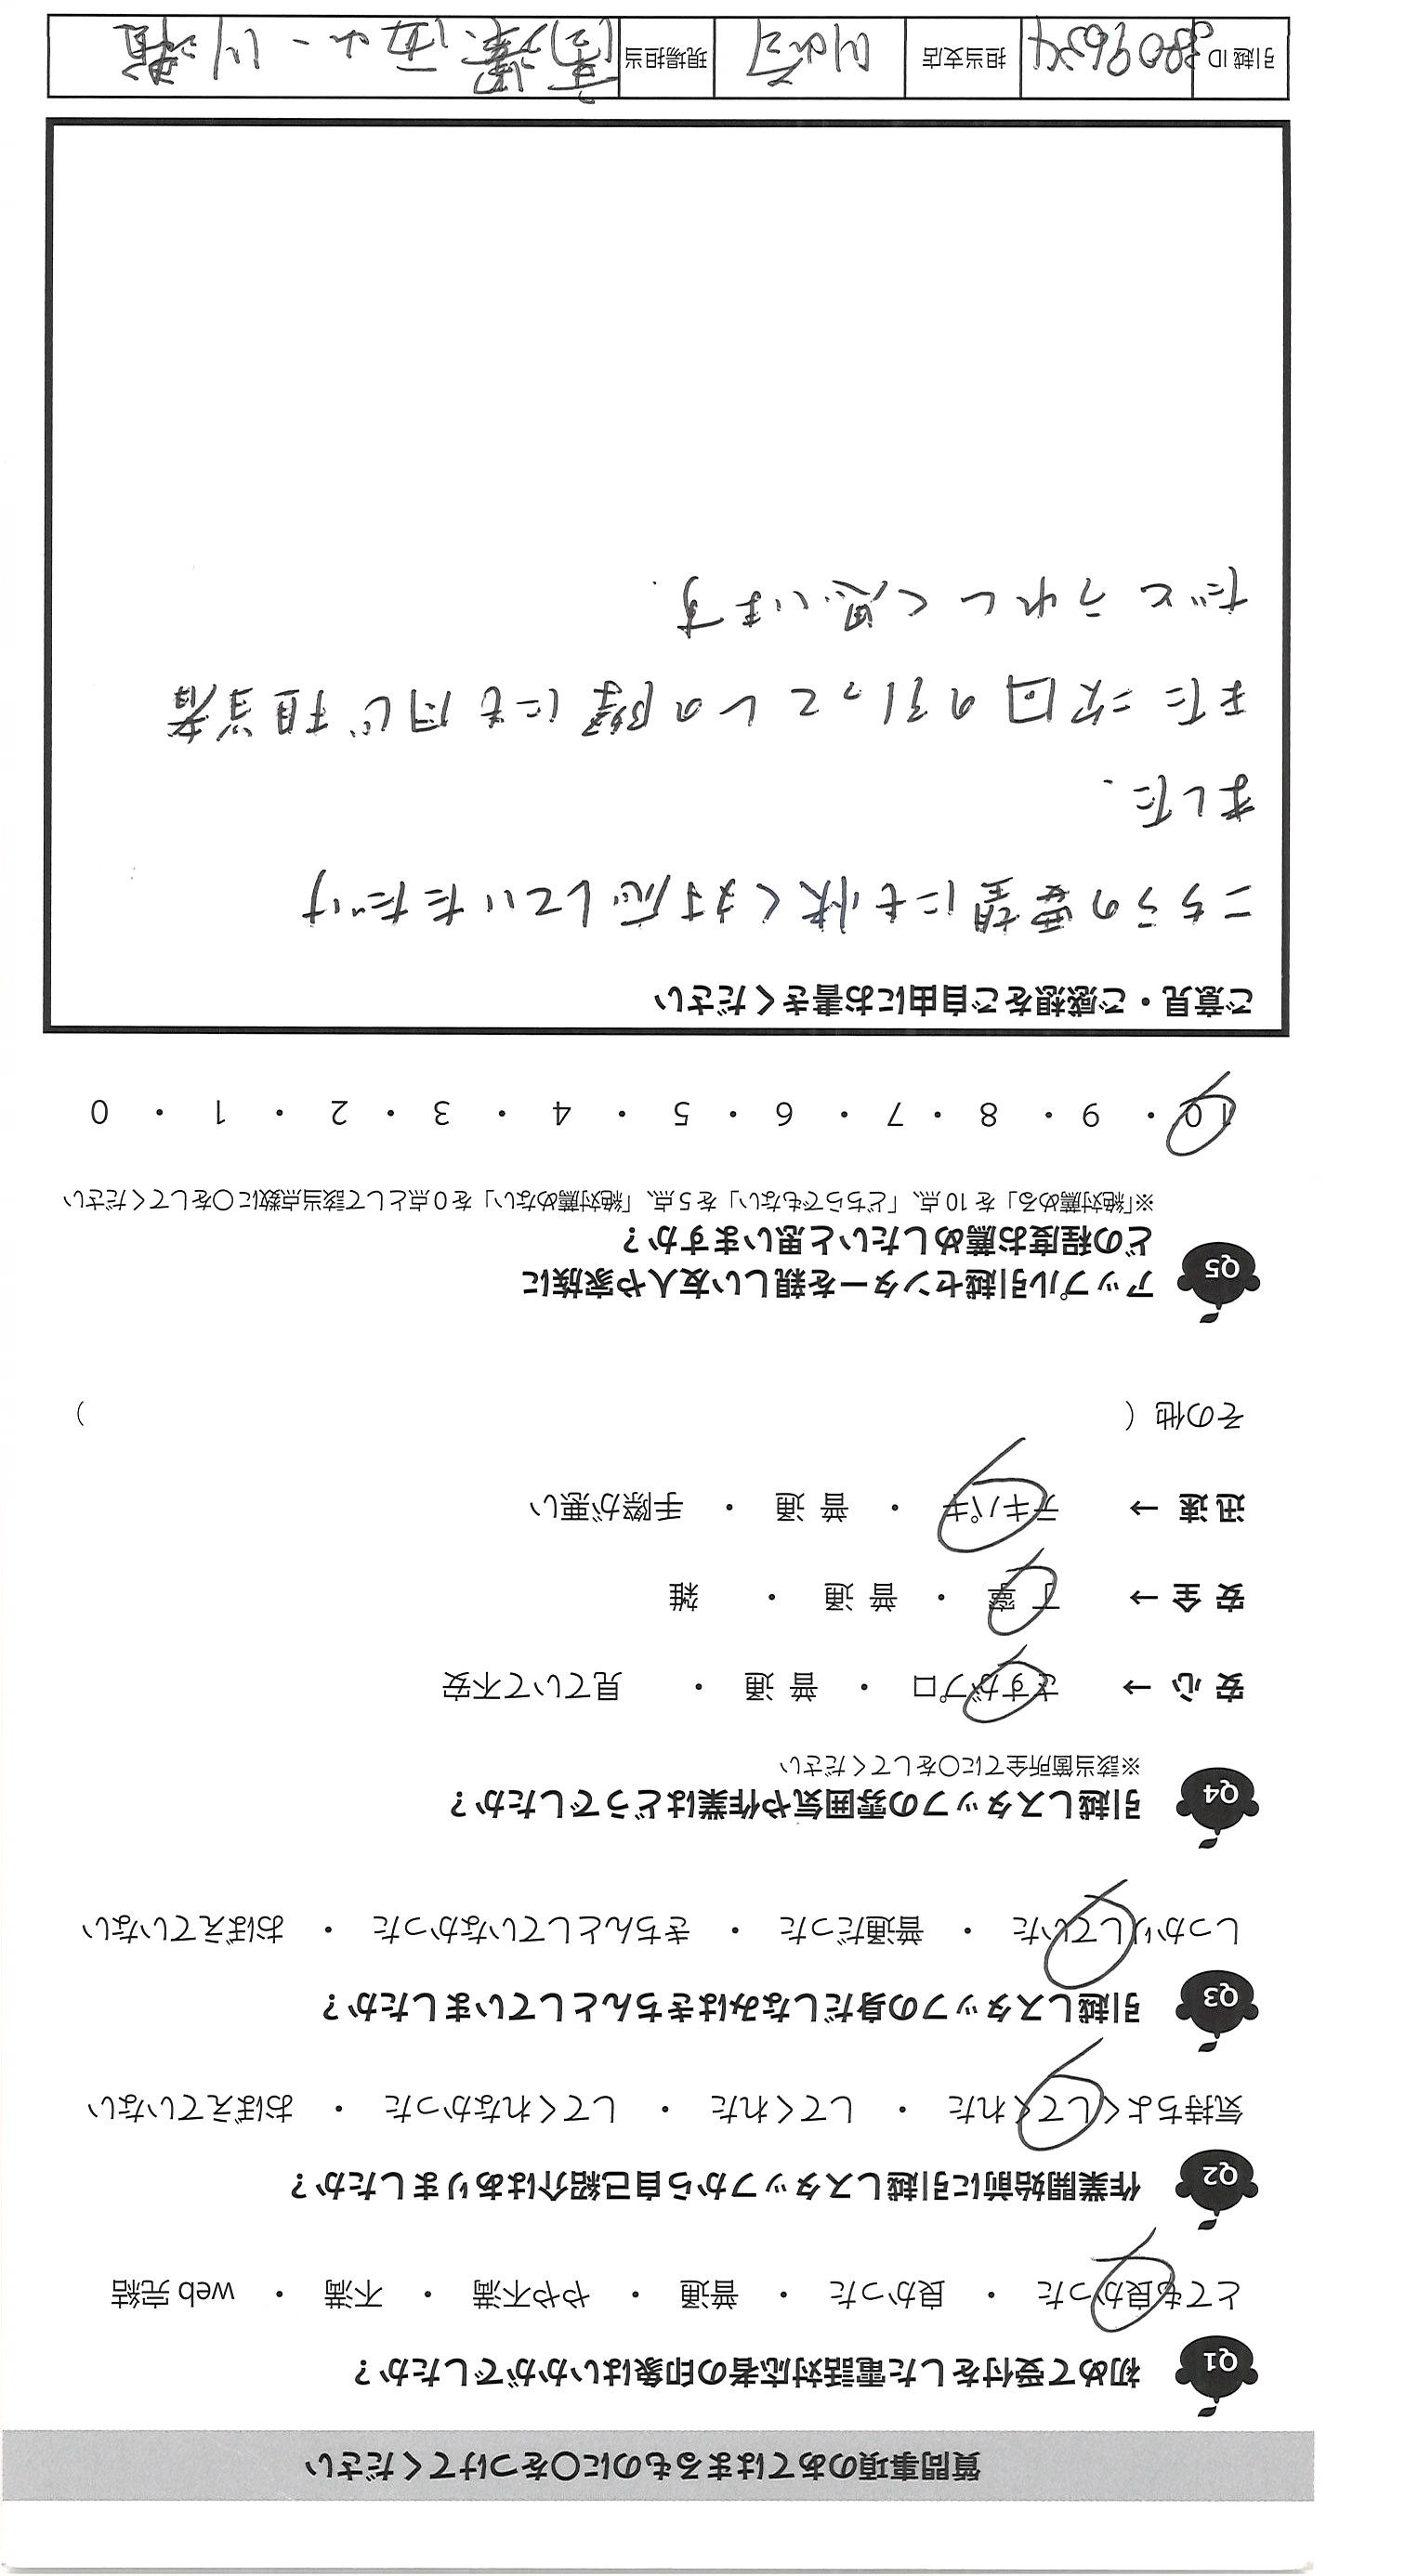 質問事項のあてはまるものに○をつけてください
Q1 初めて受付をした電話対応者の印象はいかがでしたか？
とても良かった ・ 良かった ・ 普通 ・ やや不満 ・ 不満 ・ web 完結
Q2 作業開始前に引越しスタッフから自己紹介はありましたか？
気持ちよくしてくれた ・ してくれた ・ してくれなかった ・ おぼえていない
Q3 引越しスタッフの身だしなみはきちんとしていましたか？
しっかりしていた ・ 普通だった ・ きちんとしていなかった ・ おぼえていない
Q4 引越しスタッフの雰囲気や作業はどうでしたか？
※該当箇所全てに○をしてください
安心→ さすがプロ ・ 普通 ・ 見ていて不安
安全→ 丁寧 ・ 普通 ・ 雑
迅速→ テキパキ ・ 普通 ・ 手際が悪い
その他（ ）
Q5 アップル引越センターを親しい友人や家族に
どの程度お薦めしたいと思いますか？
※「絶対薦める」を 10 点、「どちらでもない」を 5 点、「絶対薦めない」を 0 点として該当点数に○をしてください
10 ・ 9 ・ 8 ・ 7 ・ 6 ・ 5 ・ 4 ・ 3 ・ 2 ・ 1 ・ 0
ご意見・ご感想をご自由にお書きください
こちらの要望にも快く対応していただけ
ました．
また次回の引っこしの際にも同じ担当者
だとうれしく思います．
引越 ID 3809634 担当支店 川崎 現場担当